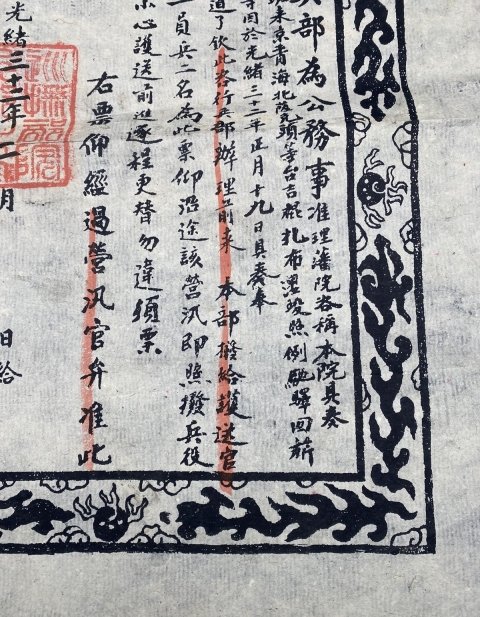 兵部為公務事准理藩院咨稱本院具奏
來京青海北院頭等台吉棍扎布湮沒照例馳驛回籍
等因於光緒三十二年正月十九日具奏奉
道了欽此咨行兵部辦理前來本部撥給護送官
一員兵二名為此票仰沿途該營汛即照撥兵役
小心護送前進逐程更替勿違須票
右票仰經過營汛官弁准此
光緒三十二年二月
日給